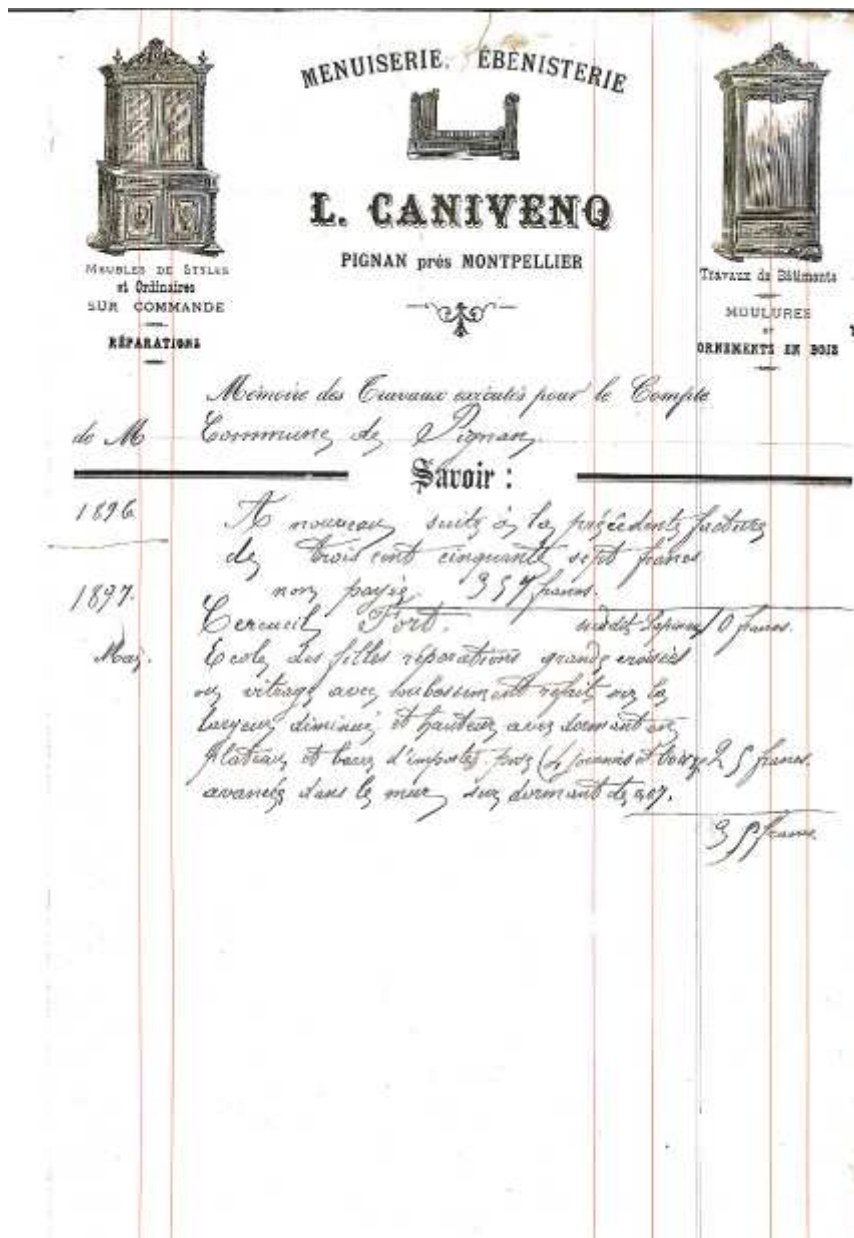 MENUISERIE. EBÉNISTERIE
L. CANIVENQ
PIGNAN prés MONTPELLIER
MEUBLES DE STYLES
et Ordinaires
SUR COMMANDE
RÉPARATIONS
Travaux de Bâtiments
MOULURES
ET
ORNEMENTS EN BOIS
Mémoire des Travaux exécutés pour le Compte
de M Commune de Pignan
Savoir :
1896 A nouveau suite à la précédente facture
de trois cent cinquante sept francs
non payée 357 francs.
1897. Cercueil Fort. 10 francs.
Mai. Ecole des filles réparations grande croisées
ou vitrage avec soubassement refait sur la
largeur diminué et hauteur avec dormant en
plateau et barre d'imposte 25 francs.
avancée dans le mur sur dormant de 0,07.
35 francs